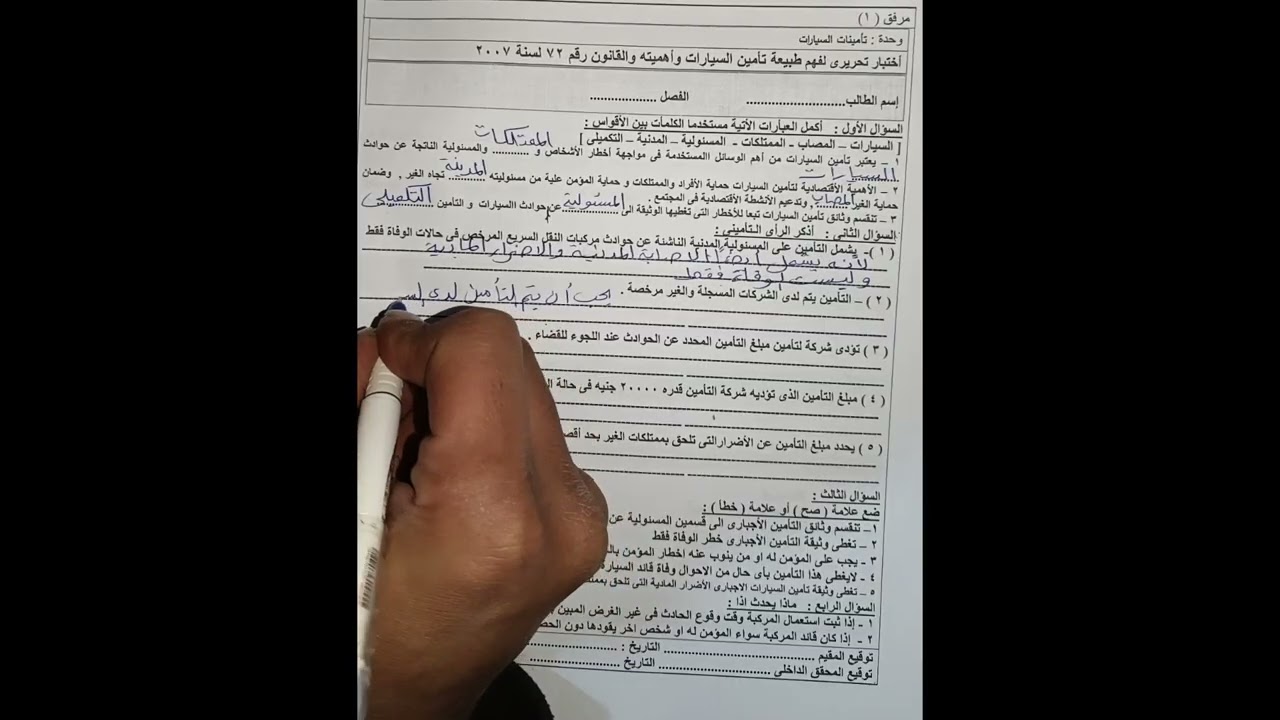 مرفق ( ١ )
وحدة : تأمينات السيارات
أختبار تحريرى لفهم طبيعة تأمين السيارات وأهميته والقانون رقم ٧٢ لسنة ٢٠٠٧
إسم الطالب........................... الفصل ..................
السؤال الأول : أكمل العبارات الأتية مستخدما الكلمات بين الأقواس :
[ السيارات – المصاب - الممتلكات - المسئولية – المدنية – التكميلى ]
الممتلكات
١ – يعتبر تأمين السيارات من أهم الوسائل االمستخدمة فى مواجهة أخطار الأشخاص و .......... والمسئولية الناتجة عن حوادث
السيارات
٢ – الأهمية الأقتصادية لتأمين السيارات حماية الأفراد والممتلكات و حماية المؤمن علية من مسئوليته المدينة تجاه الغير , وضمان
حماية الغير المصاب وتدعيم الأنشطة الأقتصادية فى المجتمع .
٣ – تنقسم وثائق تأمين السيارات تبعا للأخطار التى تغطيها الوثيقة الى المسئولية عن حوادث االسيارات و التأمين التكميلى
السؤال الثانى : أذكر الرأى التأمينى :
( ١ )- يشمل التأمين على المسئولية المدنية الناشئة عن حوادث مركبات النقل السريع المرخص فى حالات الوفاة فقط
لأنه يشمل أيضاً الاصابة المدنية والاضرار المادية
وليست الوفاة فقط
( ٢ ) – التأمين يتم لدى الشركات المسجلة والغير مرخصة . يجب أن يتم التأمين لدى
( ٣ ) تؤدى شركة لتأمين مبلغ التأمين المحدد عن الحوادث عند اللجوء للقضاء .
( ٤ ) مبلغ التأمين الذى تؤديه شركة التأمين قدره ٢٠٠٠٠ جنيه فى حالة
( ٥ ) يحدد مبلغ التأمين عن الأضرارالتى تلحق بممتلكات الغير بحد
السؤال الثالث :
ضع علامة ( صح ) أو علامة ( خطأ ) :
١– تنقسم وثائق التأمين الأجبارى الى قسمين المسئولية
٢ – تغطى وثيقة التأمين الأجبارى خطر الوفاة فقط
٣ - يجب على المؤمن له او من ينوب عنه اخطار المؤمن
٤ - لايغطى هذا التأمين بأى حال من الاحوال وفاة قائد السيارة
٥ – تغطى وثيقة تأمين السيارات الاجبارى الأضرار المادية التى تلحق
السؤال الرابع : ماذا يحدث اذا :
١ - إذا ثبت استعمال المركبة وقت وقوع الحادث فى غير الغرض المبين
٢ - إذا كان قائد المركبة سواء المؤمن له او شخص اخر يقودها دون
توقيع المقيم ........................... التاريخ : ...................
توقيع المحقق الداخلى ........................... التاريخ ...................